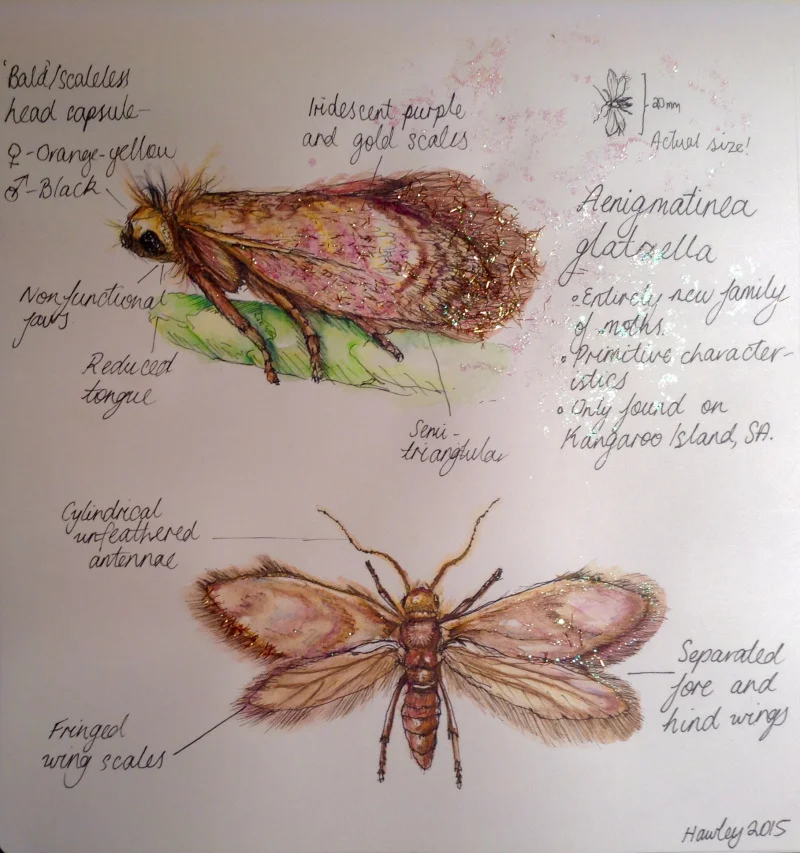 'Bald'/scaleless
head capsule-
♀-Orange-yellow
♂-Black
Iridescent purple
and gold scales
20mm
Actual size!
Aenigmatinea
glatzella
• Entirely new family
of moths.
• Primitive character-
istics
• Only found on
Kangaroo Island, SA.
Nonfunctional
jaws
Reduced
tongue
Semi-
triangular
Cylindrical
unfeathered
antennae
Separated
fore and
hind wings
Fringed
wing scales
Hawley 2015